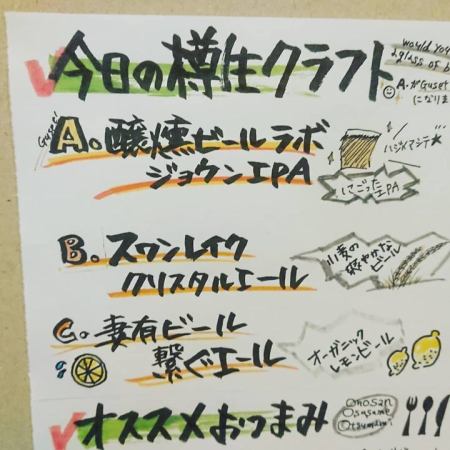 今日の樽生クラフト
would you
a glass of b
A.がGuest
になりま
Guest
A. 醸燻ビールラボ
ジョウクンIPA
ハジメマシテ★
にごったIPA
B. スワンレイク
クリスタルエール
小麦の
爽やかな
ビール
C. 妻有ビール
繋ぐエール
オーガニック
レモンビール
オススメおつまみ
Onosan
Osusume
Otsumami